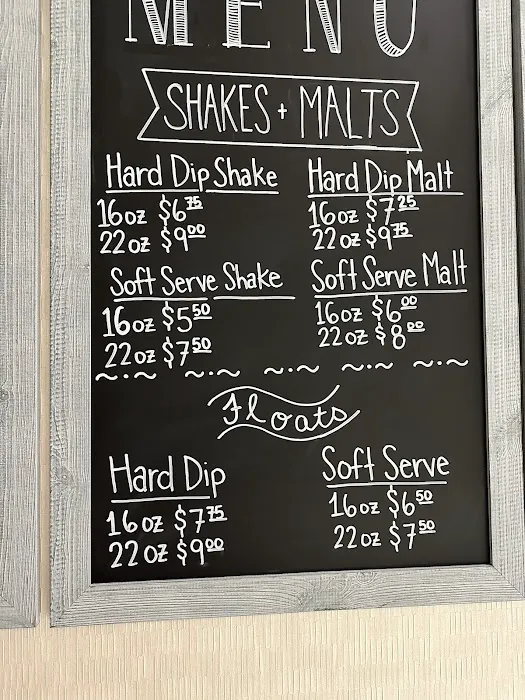 MENU
SHAKES + MALTS
Hard Dip Shake
16oz $6.75
22oz $9.00
Hard Dip Malt
16oz $7.25
22oz $9.75
Soft Serve Shake
16oz $5.50
22oz $7.50
Soft Serve Malt
16oz $6.00
22oz $8.00
~·~ ~·~ ~·~ ~·~ ~·~
Floats
Hard Dip
16oz $7.75
22oz $9.00
Soft Serve
16oz $6.50
22oz $7.50